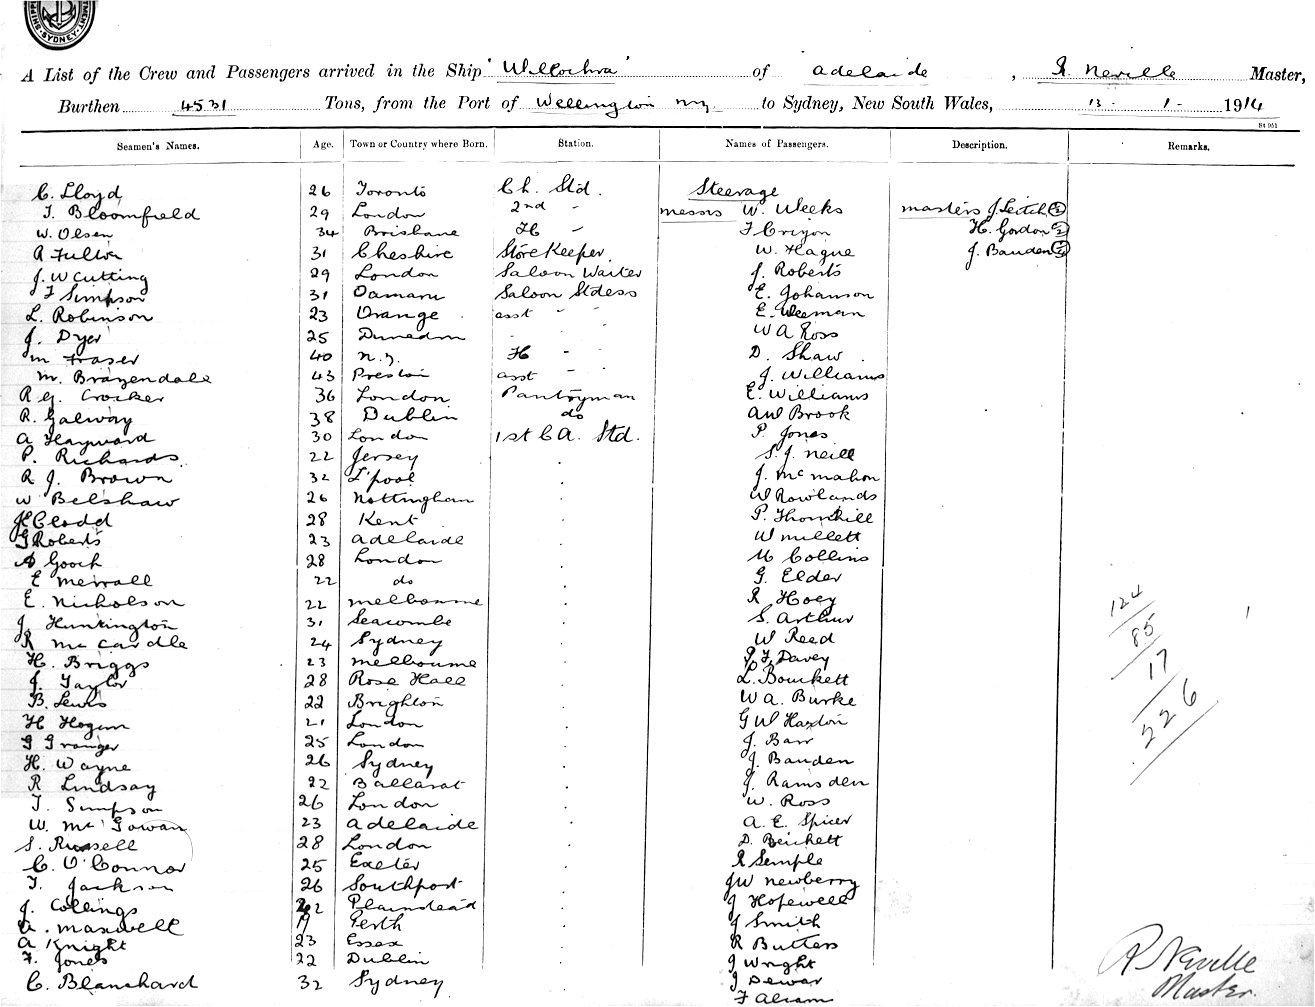 SYDNEY
A List of the Crew and Passengers arrived in the Ship "Willochra" of Adelaide, R. Neville Master,
Burthen 4531 Tons, from the Port of Wellington N.Z. to Sydney, New South Wales, 13 - 1 - 1914
St 951
Seamen's Names. Age. Town or Country where Born. Station. Names of Passengers. Description. Remarks.
C. Lloyd 26 Toronto Ch. Std. Steerage
T. Bloomfield 29 London 2nd " Messrs W. Weeks Masters J. Leitch ½
W. Olsen 34 Brisbane H " F Cregon H. Gordon ½
A Fulton 31 Cheshire StoreKeeper. W. Hague J. Bauden ½
J. W Cutting 29 London Saloon Waiter J. Roberts
F Simpson 31 Oamaru Saloon Stdess E. Johanson
L. Robinson 23 Orange asst " " E. Weeman
J. Dyer 25 Dunedin " " " W A Ross
M Fraser 40 N.Z. H " " D. Shaw
M. Brazendale 43 Preston asst " " J. Williams
R. G. Crocker 36 London Pantryman E. Williams
R. Galway 38 Dublin do AW Brook
A Hayward 30 London 1st C A. Std. P. Jones
P. Richards 22 Jersey S. J. Neill
R J. Brown 32 L'pool J. McMahon
W Belshaw 26 Nottingham W Rowlands
H Clodd 28 Kent P. Thornhill
G Roberts 23 Adelaide W Millett
A Gooch 28 London M Collins
E Merrall 22 do G. Elder
E. Nicholson 22 Melbourne R Hoey
J. Huntington 31 Seacombe S. Arthur 124
R McCardle 24 Sydney W Reed 85
H. Briggs 23 Melbourne P. J. Davey 17
J. Taylor 28 Rose Hall L. Bourkett 226
B. Lewis 22 Brighton W A. Burke
H Hogan 21 London G W Haxton
G Granger 25 London J. Barr
H. Wayne 26 Sydney J. Bauden
R Lindsay 22 Ballarat J. Ramsden
T. Simpson 26 London W. Ross
W. McGowan 23 Adelaide A. E. Spicer
S. Russell 28 London D. Beickett
C. O'Connor 25 Exeter R Semple
T. Jackson 26 Southport JW Newberry
J. Collings 22 Plumstead J Hopewell
A. Maxwell 19 Perth J Smith
A Knight 23 Essex R Butters
F. Jones 22 Dublin J Wright
C. Blanchard 32 Sydney J Dewar
F Abram
R Neville
Master